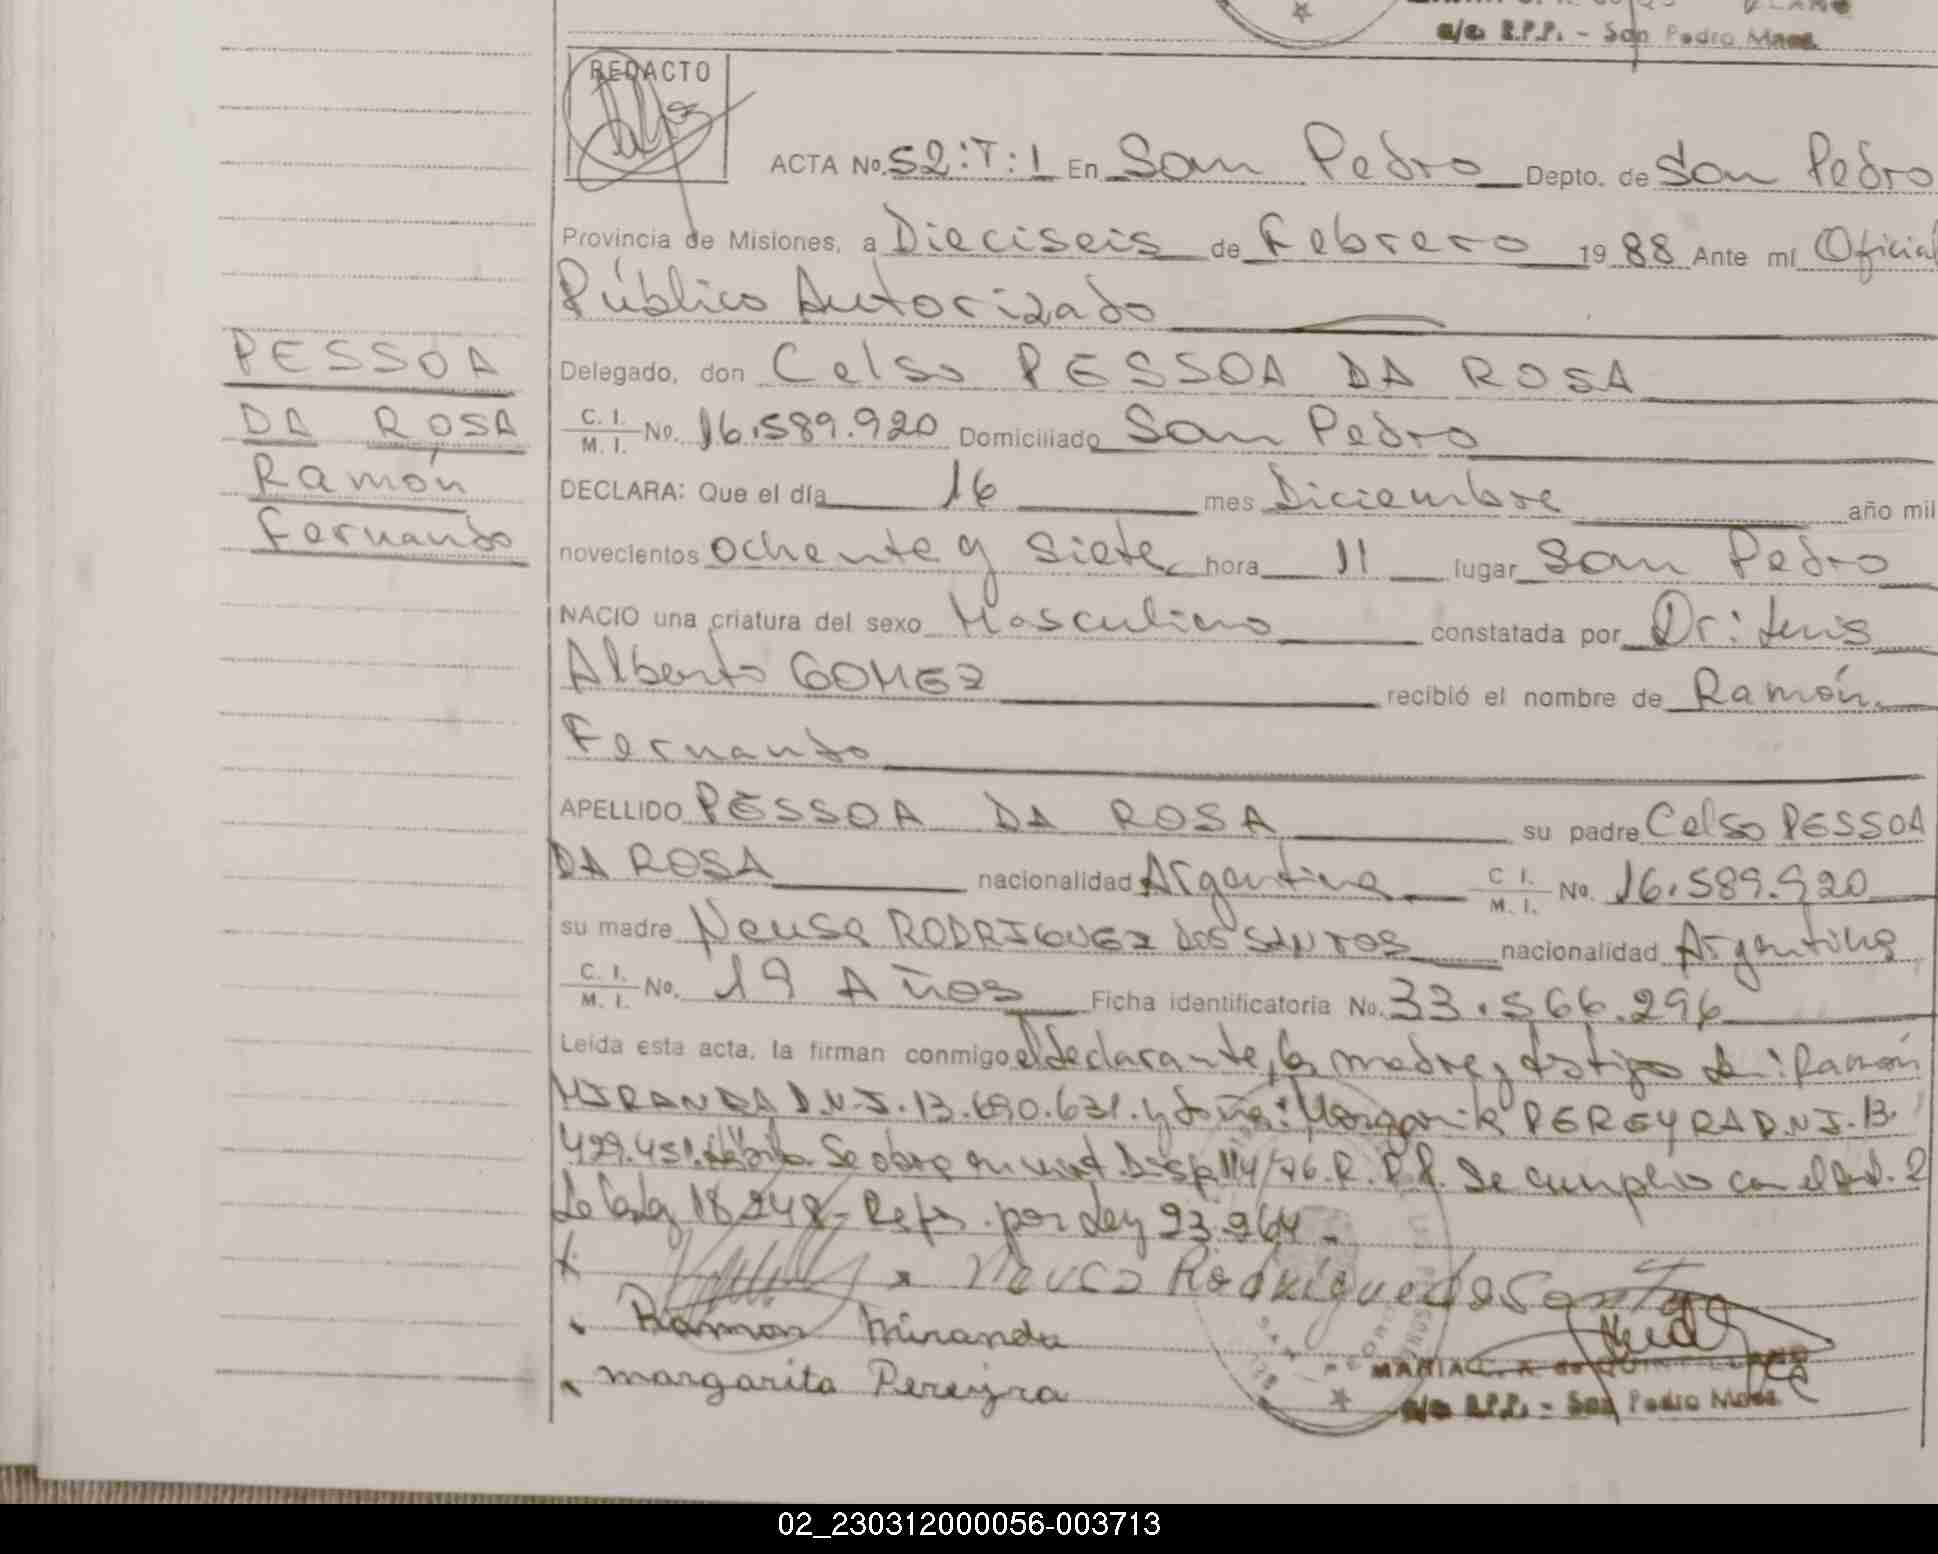 a/c R.P.P. - San Pedro Mnes.
REDACTO
ACTA No. 52:T:1 En San Pedro Depto. de San Pedro
Provincia de Misiones, a Dieciseis de Febrero 1988 Ante mí Oficial
Público Autorizado
PESSOA
Delegado, don Celso PESSOA DA ROSA
DA ROSA
C. I. / M. I. No. 16.589.920 Domiciliado San Pedro
Ramón
DECLARA: Que el día 16 mes Diciembre año mil
Fernando
novecientos ochenta y siete hora 11 lugar San Pedro
NACIO una criatura del sexo Masculino constatada por Dr: Luis
Alberto GOMEZ recibió el nombre de Ramón
Fernando
APELLIDO PESSOA DA ROSA su padre Celso PESSOA
DA ROSA nacionalidad Argentina C I. / M. I. No. 16.589.920
su madre Neusa RODRIGUEZ DOS SANTOS nacionalidad Argentina
C. I. / M. I. No. 19 Años Ficha identificatoria No. 33.566.296
Leída esta acta, la firman conmigo el declarante, la madre y testigo de: Ramón
MIRANDA D.N.I. 13.690.631. y doña: Margarita PEREYRA D.N.I. 13
429.451. Se obra en virt. Disp. 114/76. R.P.P. Se cumplio con el Art. 2
de la Ley 18.248 - Ref. por Ley 23.264 -
x x Neusa Rodriguez do Santo
Ramon Miranda
margarita Pereyra
MARIA C. A. de QUINTILLANO
a/c R.P.P. - San Pedro Mnes.
02_230312000056-003713